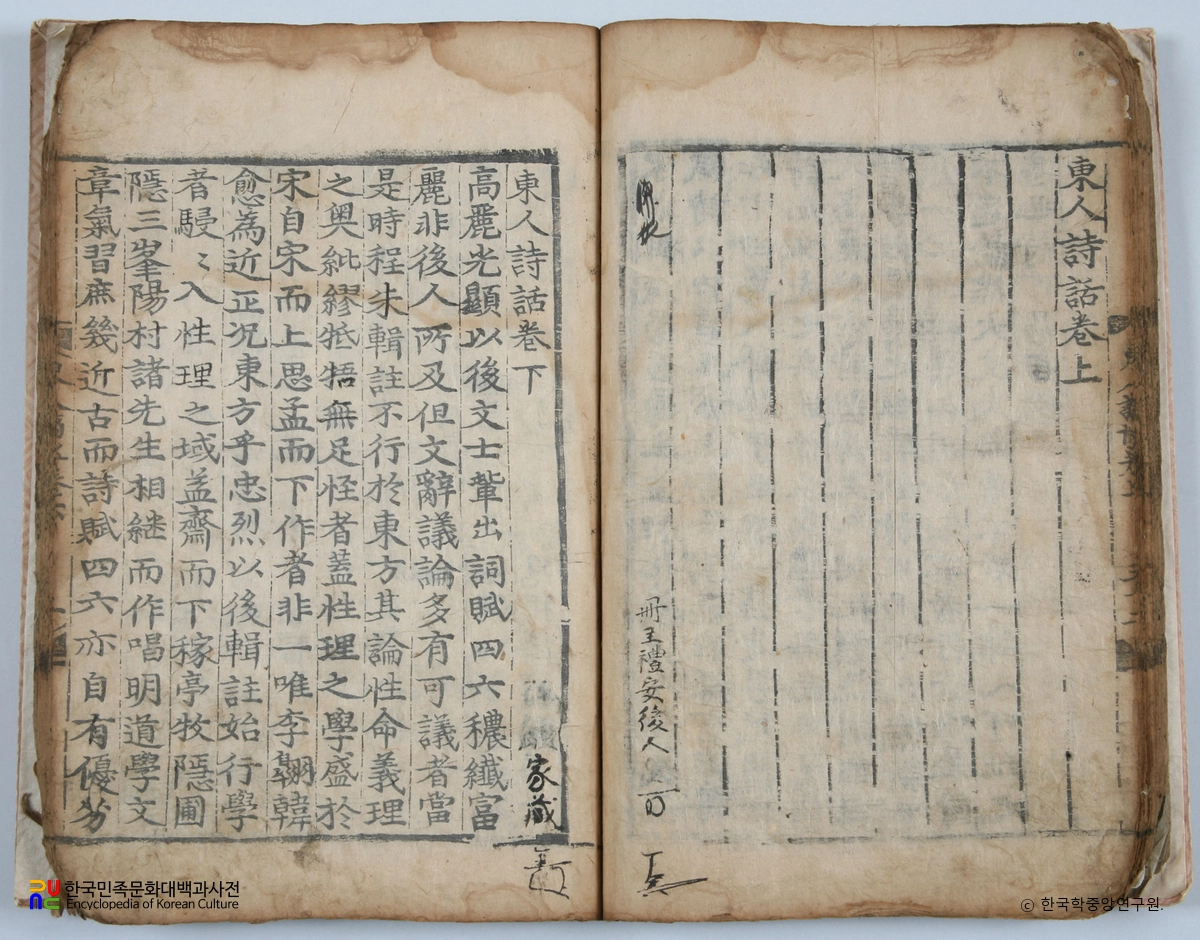 東人詩話卷上
冊主禮安後人
東人詩話卷下
家藏
高麗光顯以後文士輩出詞賦四六穠纖富
麗非後人所及但文辭議論多有可議者當
是時程朱輯註不行於東方其論性命義理
之奧紕繆牴牾無足怪者蓋性理之學盛於
宋自宋而上思孟而下作者非一唯李翺韓
愈為近正况東方乎忠烈以後輯註始行學
者駸〻入性理之域益齋而下稼亭牧隱圃
隱三峯陽村諸先生相継而作唱明道學文
章氣習庶幾近古而詩賦四六亦自有優劣
한국민족문화대백과사전
Encyclopedia of Korean Culture
ⓒ 한국학중앙연구원.